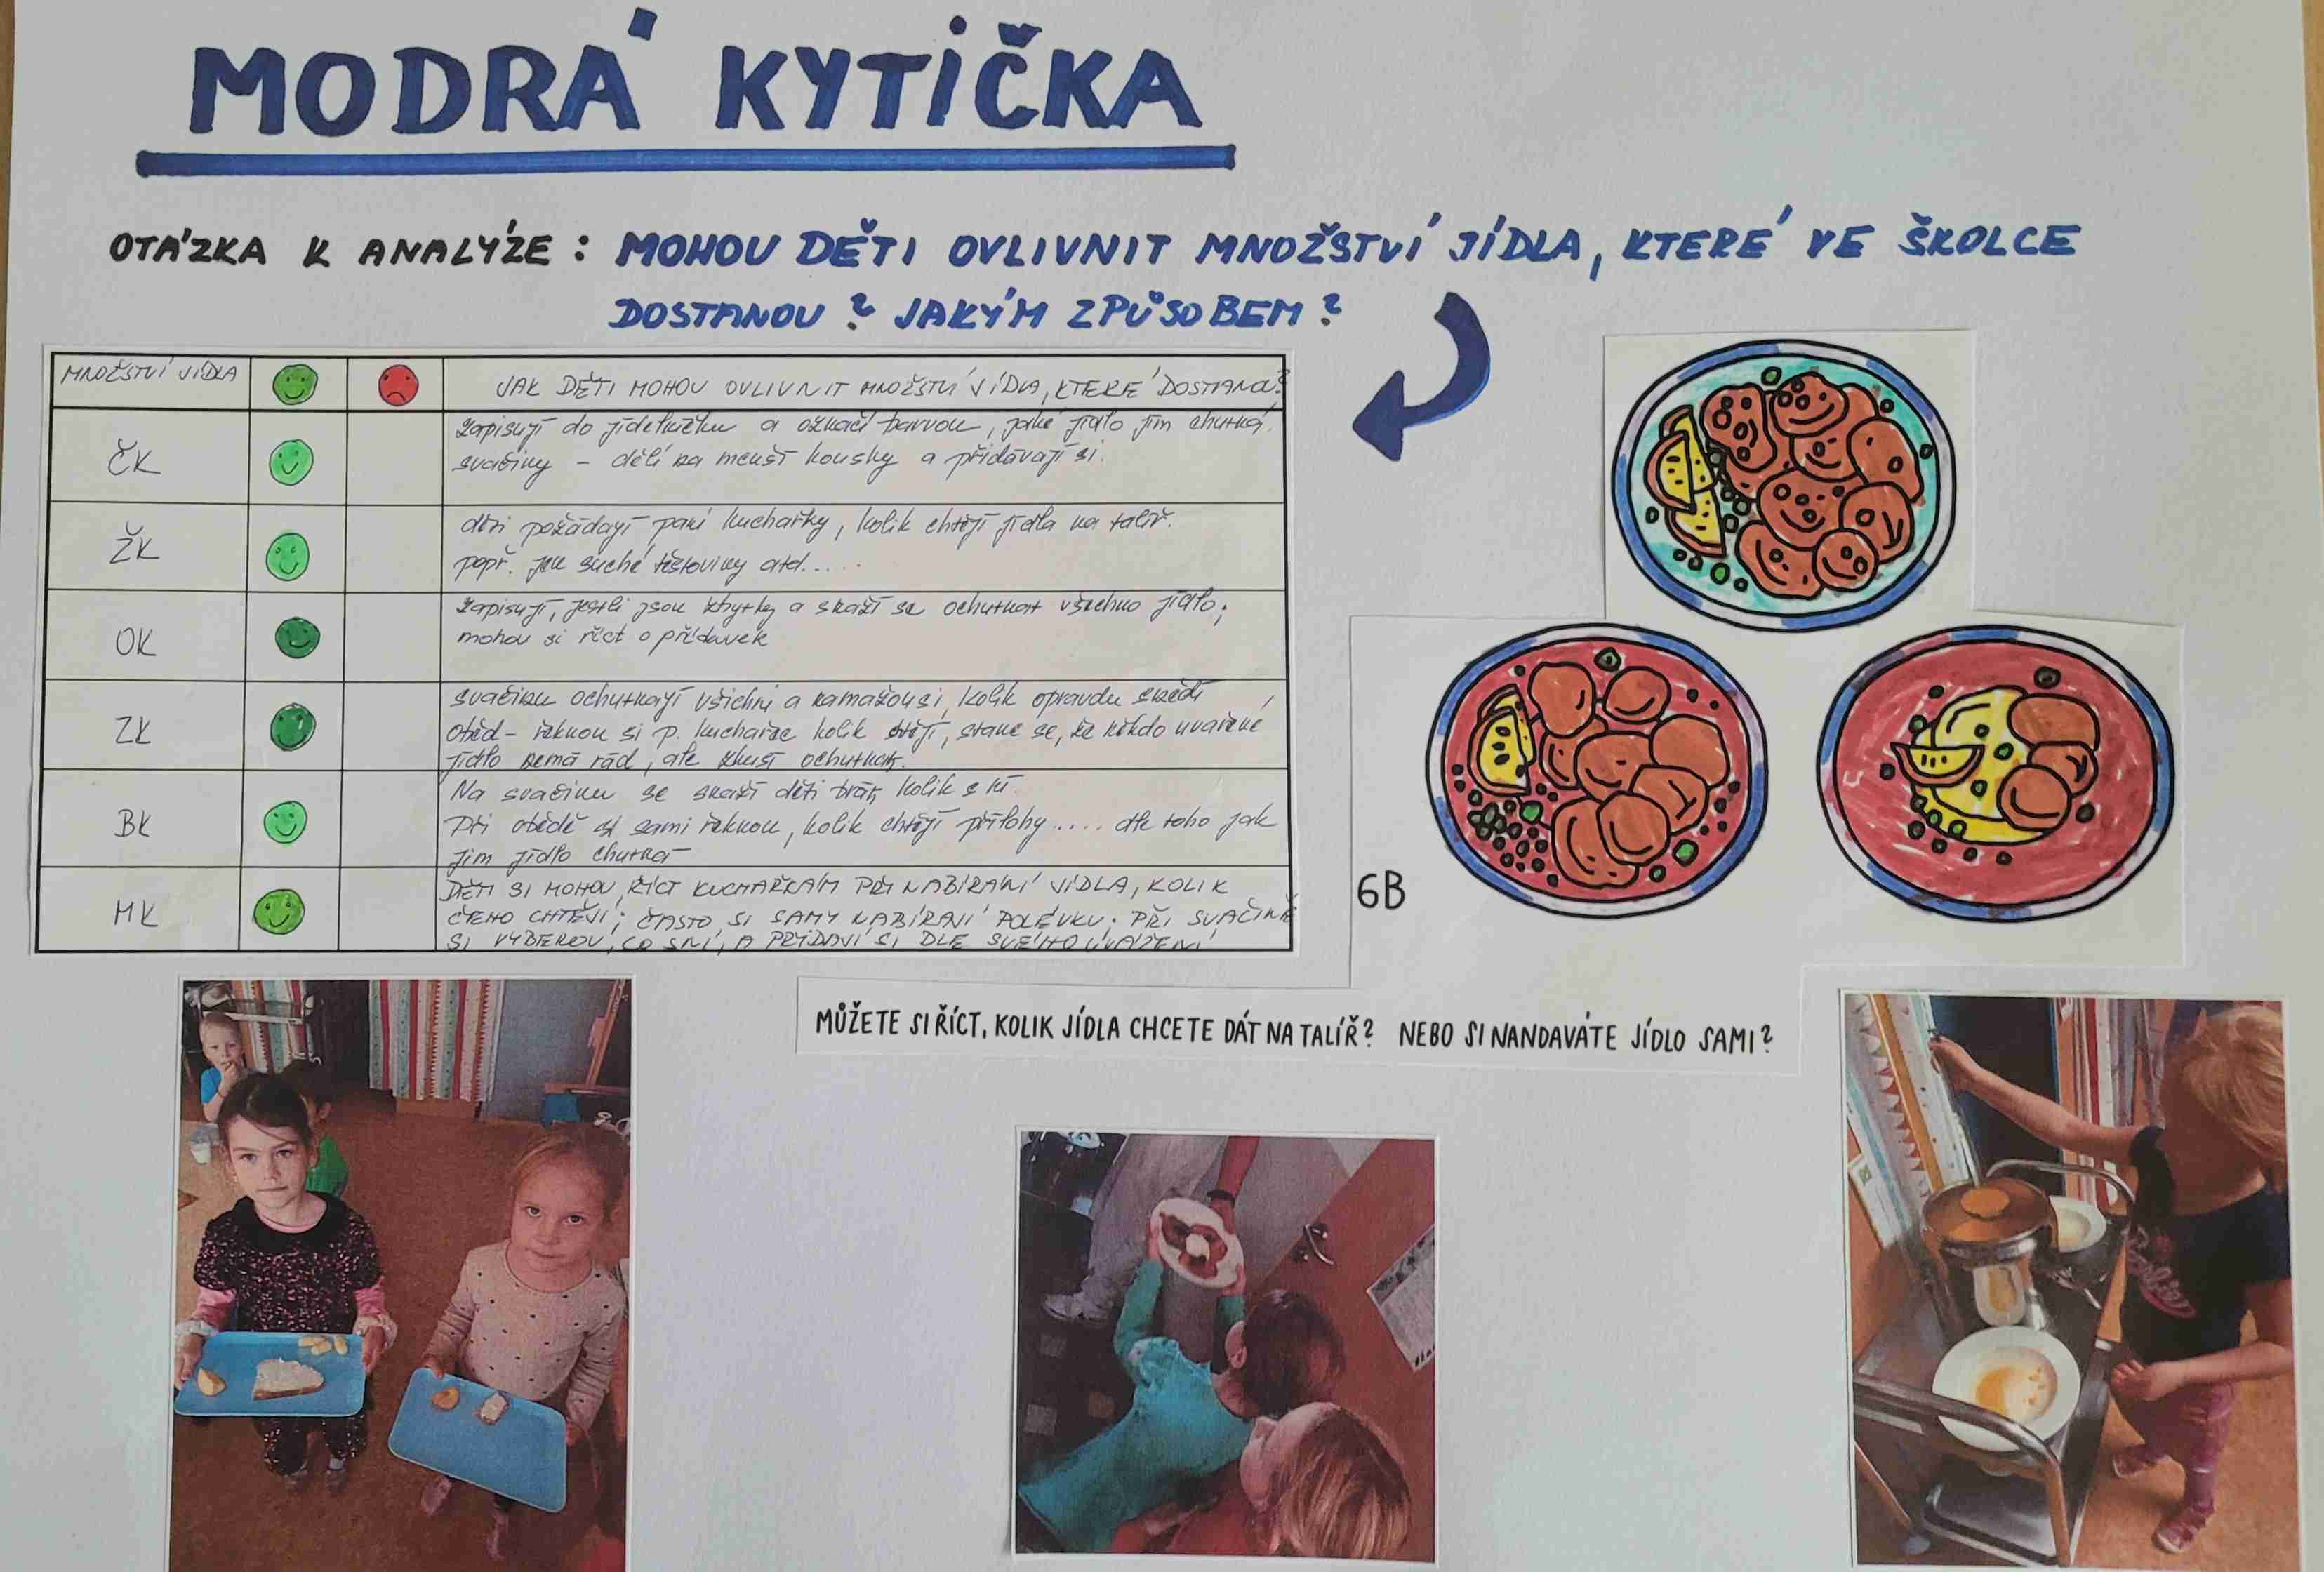 MODRÁ KYTIČKA
OTÁZKA K ANALÝZE: MOHOU DĚTI OVLIVNIT MNOŽSTVÍ JÍDLA, KTERÉ VE ŠKOLCE
DOSTANOU? JAKÝM ZPŮSOBEM?
MNOŽSTVÍ JÍDLA
JAK DĚTI MOHOU OVLIVNIT MNOŽSTVÍ JÍDLA, KTERÉ DOSTANOU?
ČK
zapisují do jídelníčku a označí barvou, jaké jídlo jim chutná.
svačiny - dělí na menší kousky a přidávají si.
ŽK
děti požádají paní kuchařky, kolik chtějí jídla na talíř.
popř. jen suché těstoviny atd.....
OK
zapisují, jestli jsou zbytky a snaží se ochutnat všechno jídlo;
mohou si říct o přídavek
ZK
svačinu ochutnají všichni a namažou si, kolik opravdu snědí
oběd - řeknou si p. kuchařce kolik chtějí, stane se, že někdo uvařené
jídlo nemá rád, ale zkusí ochutnat.
BK
Na svačinu se snaží děti brát, kolik sní.
Při obědě si sami řeknou, kolik chtějí přílohy .... dle toho jak
jim jídlo chutná
MK
DĚTI SI MOHOU ŘÍCT KUCHAŘKÁM PŘI NABÍRÁNÍ JÍDLA, KOLIK
ČEHO CHTĚJÍ; ČASTO SI SAMY NABÍRAJÍ POLÉVKU; PŘI SVAČINĚ
SI VYBEROU, CO SNÍ, A PŘIDAJÍ SI DLE SVÉHO UVÁŽENÍ
6B
MŮŽETE SI ŘÍCT, KOLIK JÍDLA CHCETE DÁT NA TALÍŘ? NEBO SI NANDAVÁTE JÍDLO SAMI?